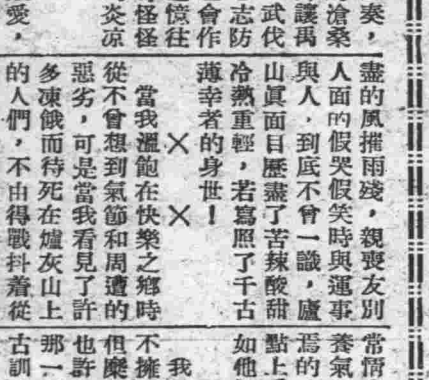 奏，
滄桑
議禹
武伐
志防
會作
憶往
怪怪
炎凉
愛，
盡的風摧雨殘，親喪友別
人面的假哭假笑時與運事
與人，到底不曾一識，廬
山眞面目歷盡了苦辣酸甜
冷熱重輕，若寫照了千古
薄幸者的身世！
××
當我溫飽在快樂之鄉時
從不曾想到氣節和周遭的
惡劣，可是當我看見了許
多凍餓而待死在爐灰山上
的人們，不由得戰抖着從
常情
養氣
焉的
點上
如他
我
不擁
但麋
也許
那一
古訓